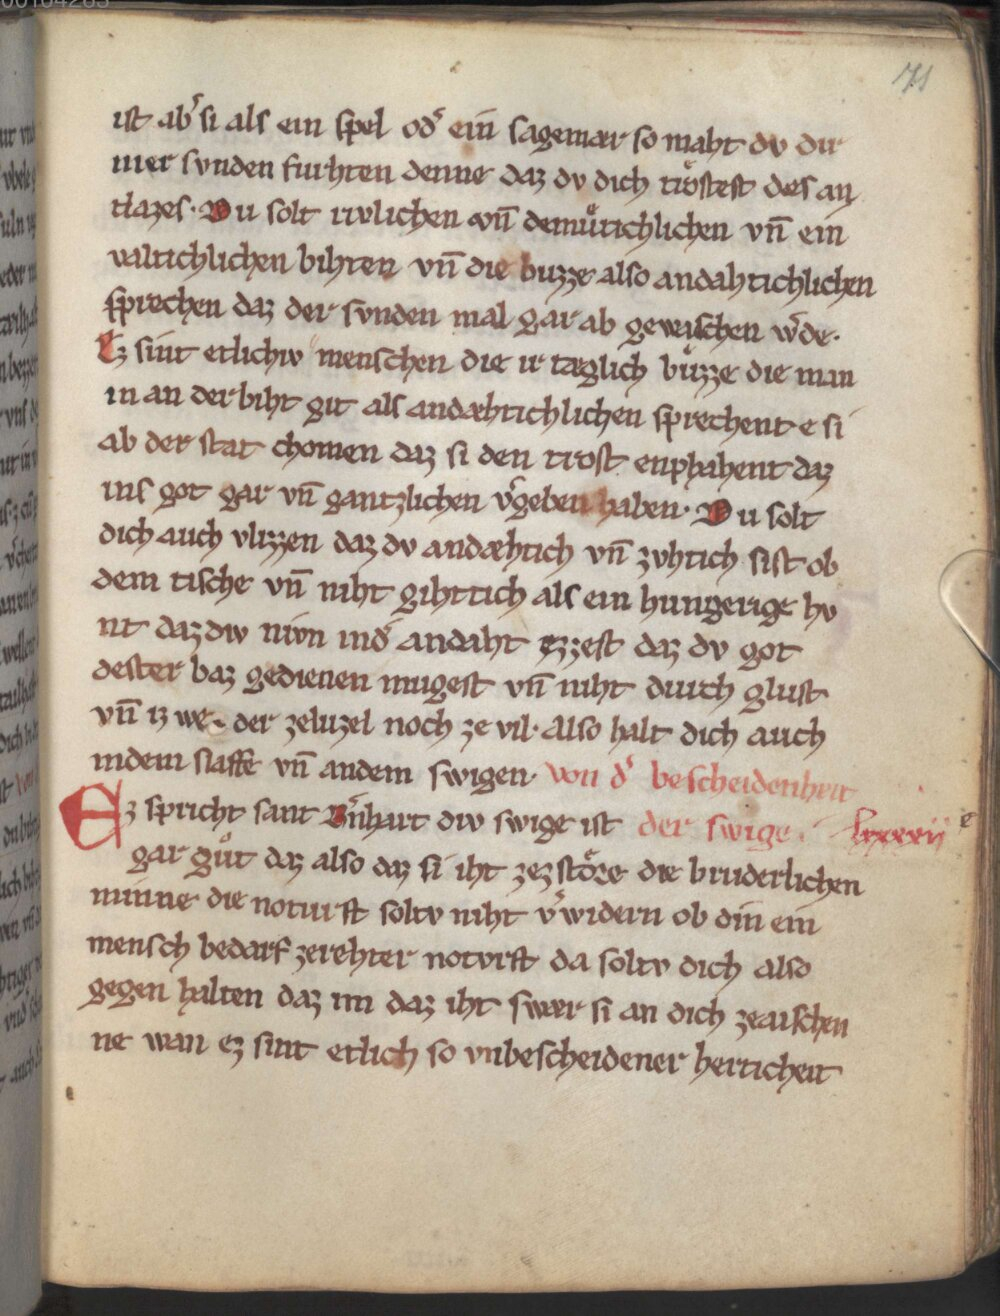 71
ist abˀ si als ein spel odˀ ein sagemær so maht dv dir
mer svnden furhten denne daz dv dich trͦstest des an
tlazes. Du solt rivlichen vn̄ demuͤtichlichen vn̄ ein
valtichlichen bihten vn̄ die buzze also andahtichlichen
sprechen daz der svnden mal gar ab gewaschen wˀde.
Ez sint etlichiv menschen die ir tæglich buͤzze die man
in an der biht git als andæhtichlichen sprechent e si
ab der stat chomen daz si den trost enphahent daz
ins got gar vn̄ gantzlichen vˀgeben haben. Du solt
dich auch vlizzen daz dv andæhtich vn̄ zvhtich sist ob
dem tische vn̄ niht gihttich als ein hungerige hv
nt daz div nivn indˀ andaht ezzest daz dv got
dester baz gedienen mugest vn̄ niht durch glust
vn̄ iz we der zeluzel noch ze vil. Also halt dich auch
indem slaffe vn̄ andem swigen. von dˀ bescheidenheit
Ez spricht sant Bˀnhart div swige ist der swige. lxxxxii
gar guͦt daz also daz si iht zezstoͤre die bruderlichen
minne die noturft soltv niht vˀwidern ob din ein
mensch bedarf zerehter notvrft da soltv dich also
gegen halten daz im daz iht swær si an dich zeaischen
ne wan ez sint etlich so vnbescheidener herticheit